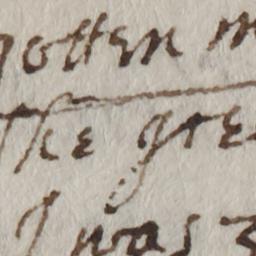 gotten m
The gre
I was 3